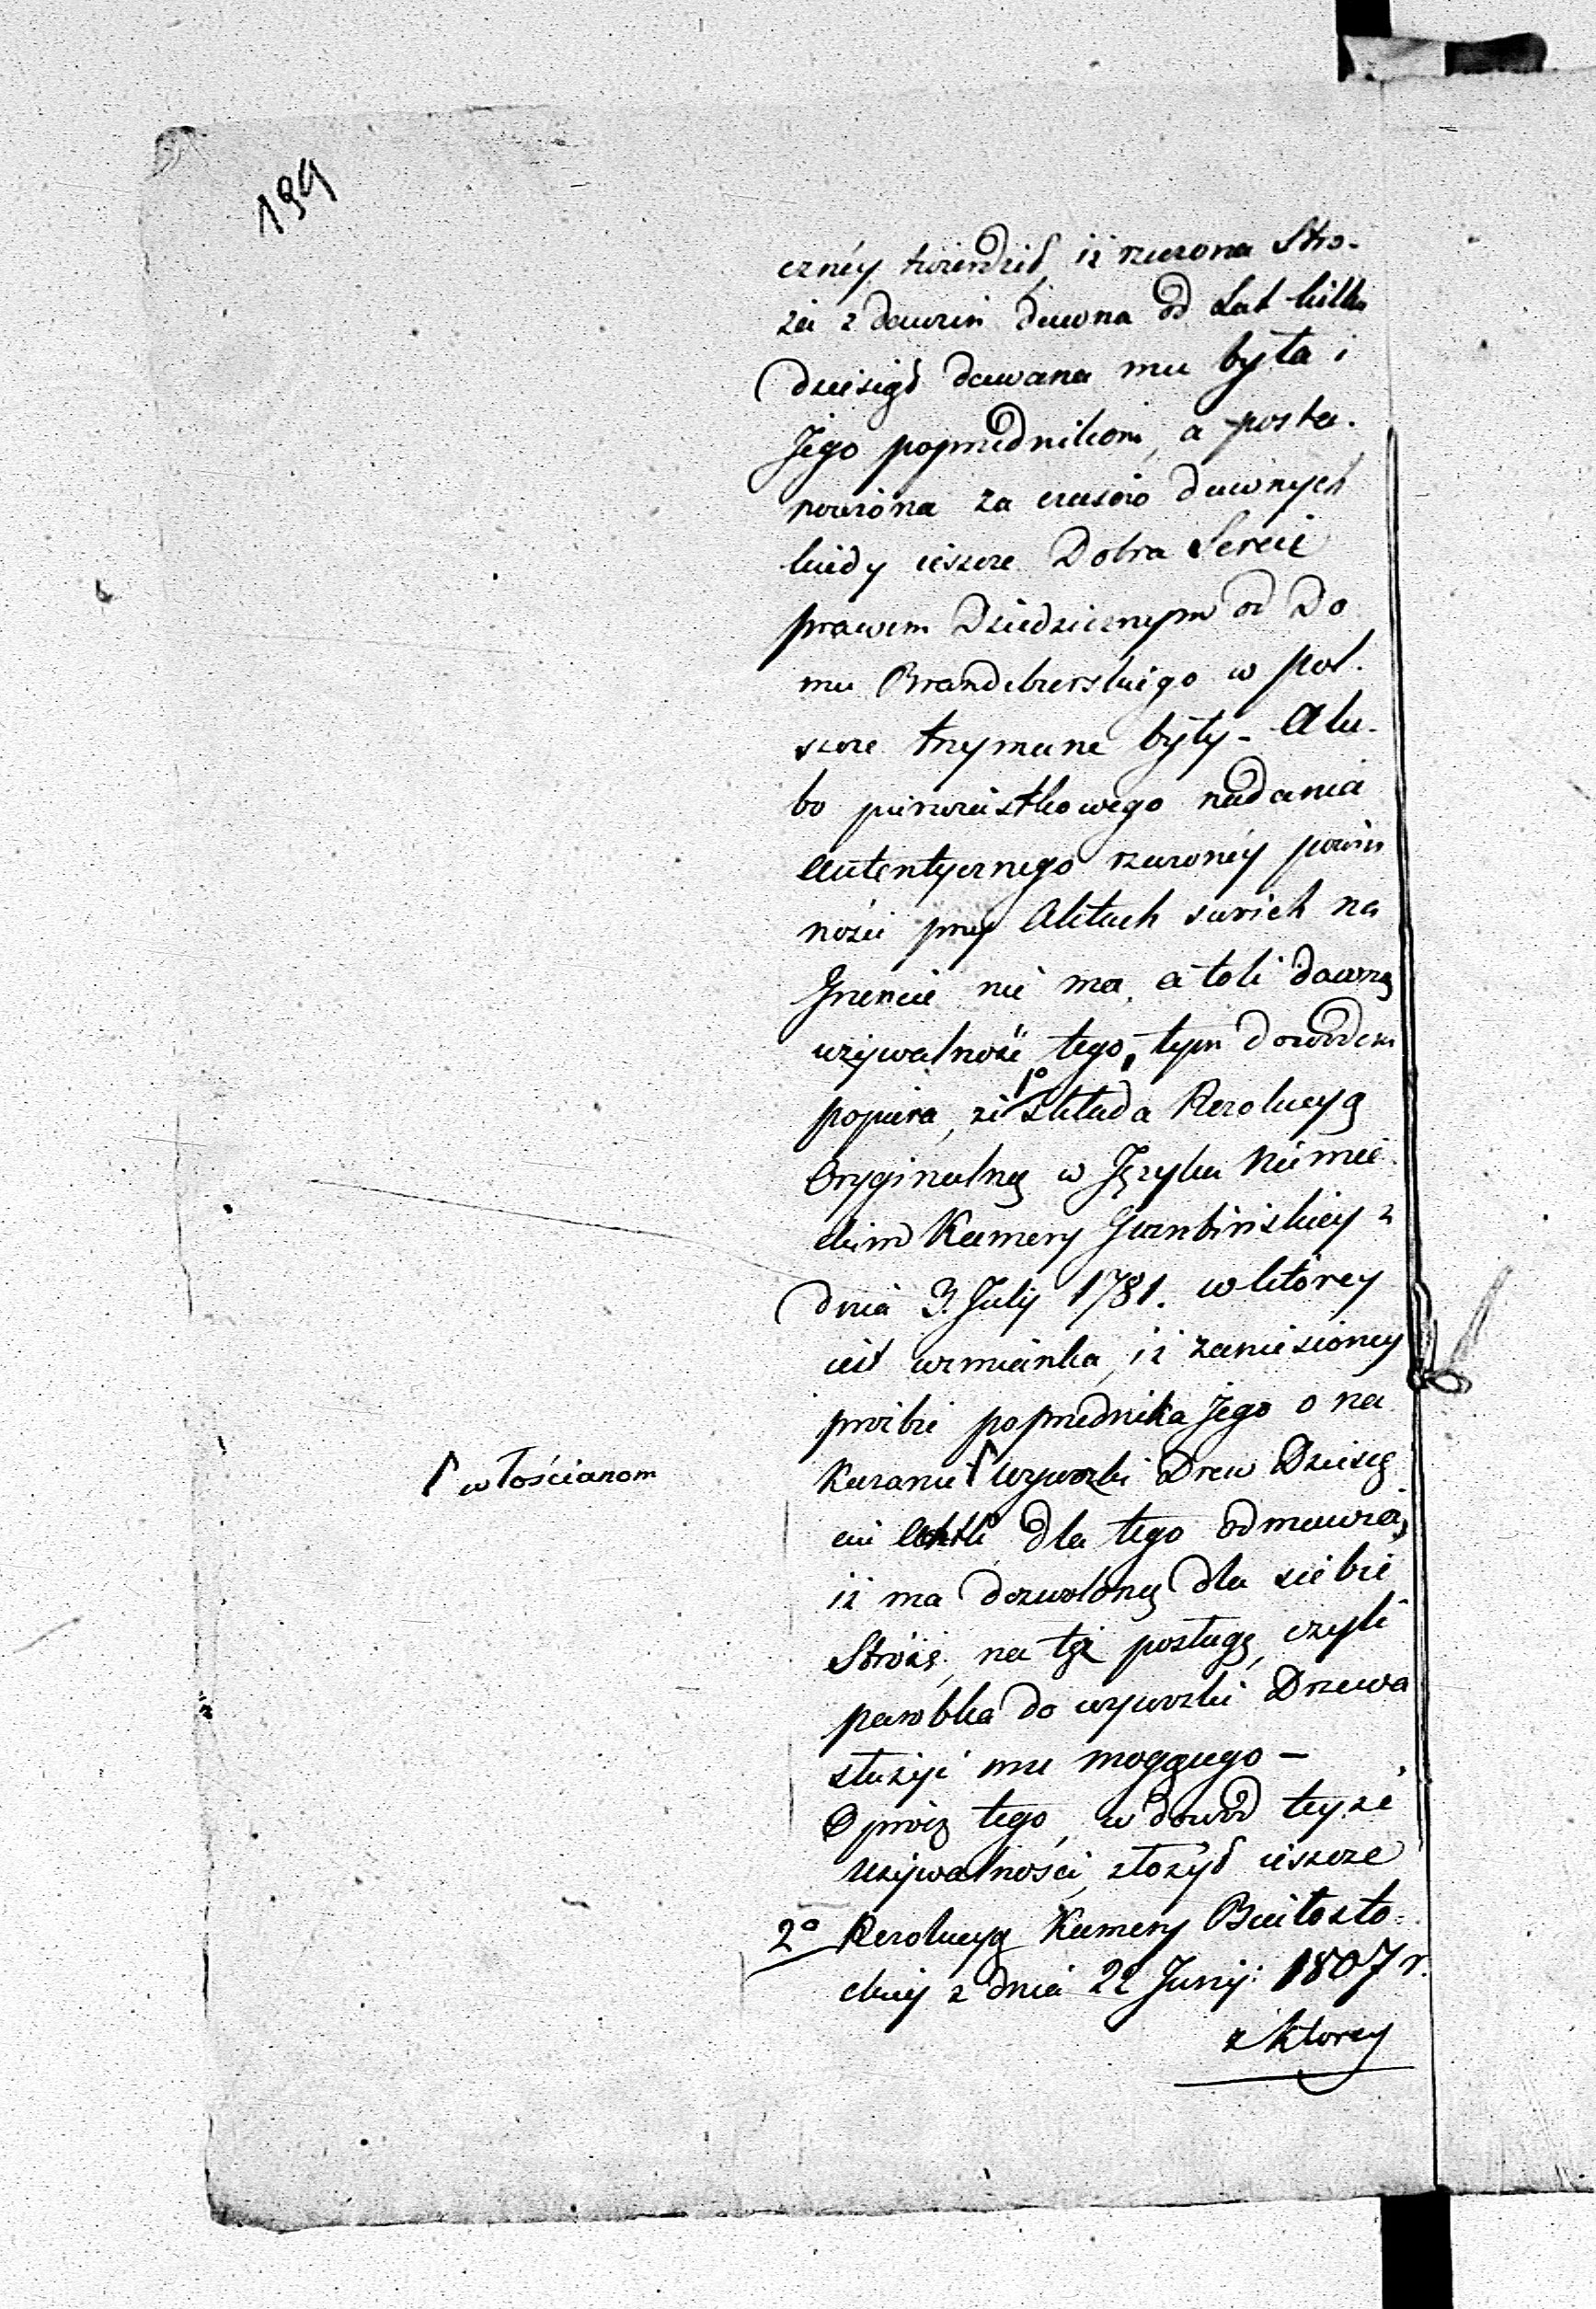 194
cznéy twierdził, iż rzeczona Stro-
ża z dawien dawna od Lat kilku
dziesiąt dawana mu była i
Jego poprzednikom, a posta-
nowiona za czasów dawnych
kiedy ieszcze Dobra Sereie
prawem Dziedzicznym od Do
mu Brandeburskiego w Pol-
szcze trzymane były - A lu-
bo pierwiastkowego nadania
autentycznego rzeczonéy powin
ności przy Aktach swoich na
Gruncie nie ma, a toli dawną
używalność tego, tym dowodem
popiera, że 1o składa Rezolucyą
Oryginalną w Języku Niemie-
ckim Kamery Gumbińskiey z
dnia 3. Julij 1781. w którey
iest wzmianka, iż zaniesioney
proźbie poprzednika Jego o na
kazanie wywozki Drew Dziesię
 włościanom
ciu dla tego odmawia,
iż ma dozwoloną dla siebie
Stróżę, na tęż posługę, czyli
parobka do wywozki Drzewa
służyć mu mogącego -
Oprócz tego, w dowód teyże
używalności, złożył ieszcze
2o Rezolucyą Kamery Białosto-
ckiey z dnia 22 Junij: 1807 r.
z którey